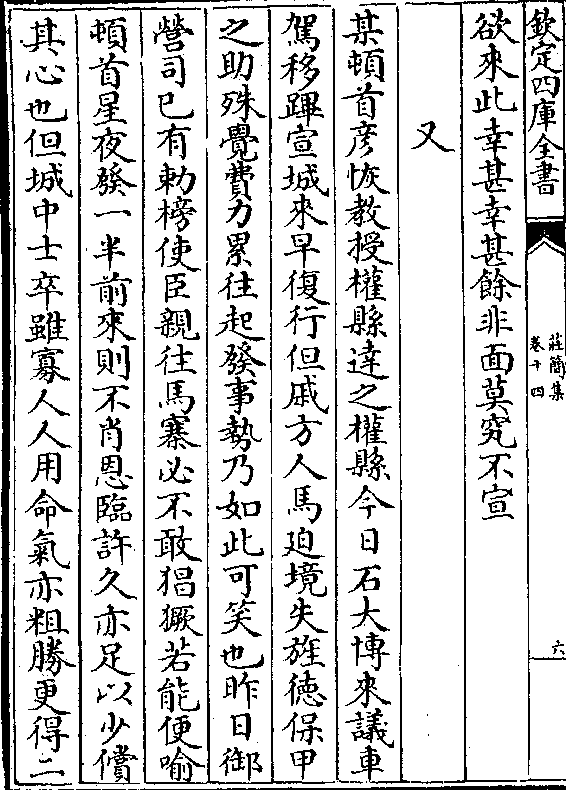 欽定四庫全書
莊簡集
卷十四
六
欲來此幸甚幸甚餘非面莫究不宣
又
某頓首彦恢教授權縣達之權縣今日石大博來議車
駕移蹕宣城來早復行但戚方人馬迫境失旌徳保甲
之助殊覺費力累往起發事勢乃如此可笑也昨日御
營司已有勅榜使臣親往馬寨必不敢猖獗若能便喻
頓首星夜發一半前來則不肖恩臨許久亦足以少償
其心也但城中士卒雖寡人人用命氣亦粗勝更得二